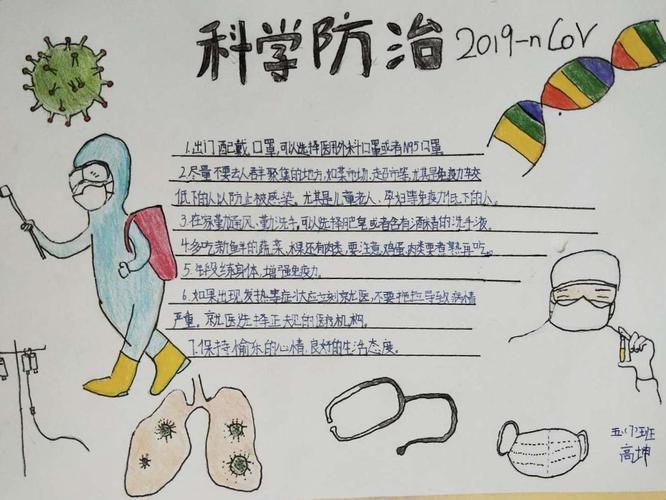 科学防治 2019-nCoV
1.出门配戴口罩,可以选择医用外科口罩或者N95口罩
2.尽量不要去人群聚集的地方,如菜市场,超市等,尤其是免疫力较
低下的人以防止被感染。尤其是儿童老人、孕妇等免疫力低下的人。
3.在家勤通风、勤洗手,可以选择肥皂或者含有酒精的洗手液。
4.多吃新鲜的蔬菜、水果还有肉类,要注意,鸡蛋,肉类要煮熟再吃。
5.锻练身体,增强免疫力。
6.如果出现发热等症状应立刻就医,不要拖拉导致病情
严重。就医选择正规的医疗机构。
7.保持愉乐的心情、良好的生活态度。
班
高坤